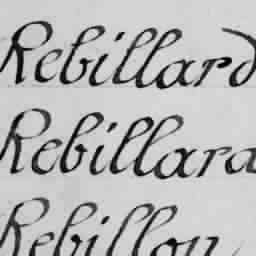 Rebillard
Rebillard
Rebillon